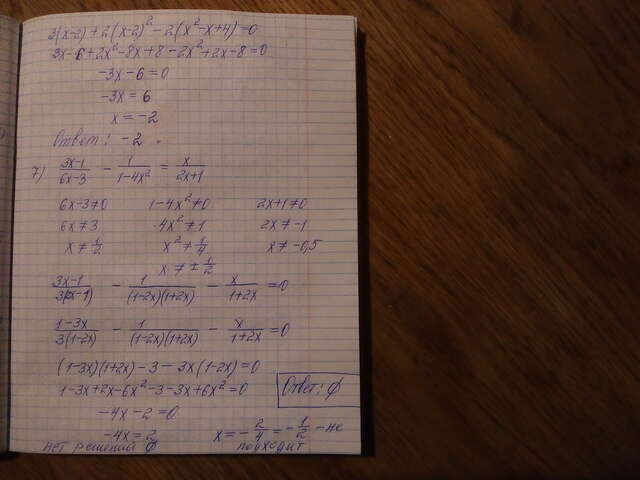 3(x-2)+2(x-2)²-2(x²-x+4)=0
3x-6+2x²-8x+8-2x²+2x-8=0
-3x-6=0
-3x=6
x=-2
Ответ: -2.
7) (3x-1)/(6x-3) - 1/(1-4x²) = x/(2x+1)
6x-3≠0 1-4x²≠0 2x+1≠0
6x≠3 4x²≠1 2x≠-1
x≠1/2 x²≠1/4 x≠-0,5
x≠±1/2
(3x-1)/(3(2x-1)) - 1/((1-2x)(1+2x)) - x/(1+2x) =0
(1-3x)/(3(1-2x)) - 1/((1-2x)(1+2x)) - x/(1+2x) =0
(1-3x)(1+2x)-3-3x(1-2x)=0
1-3x+2x-6x²-3-3x+6x²=0 Ответ: ∅
-4x-2=0
-4x=2 x=-2/4=-1/2 - не
нет решений ∅ подходит